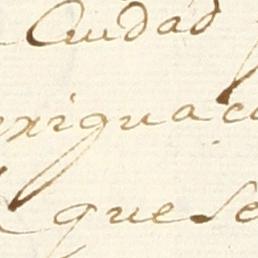 Ciudad
exigua co
que se